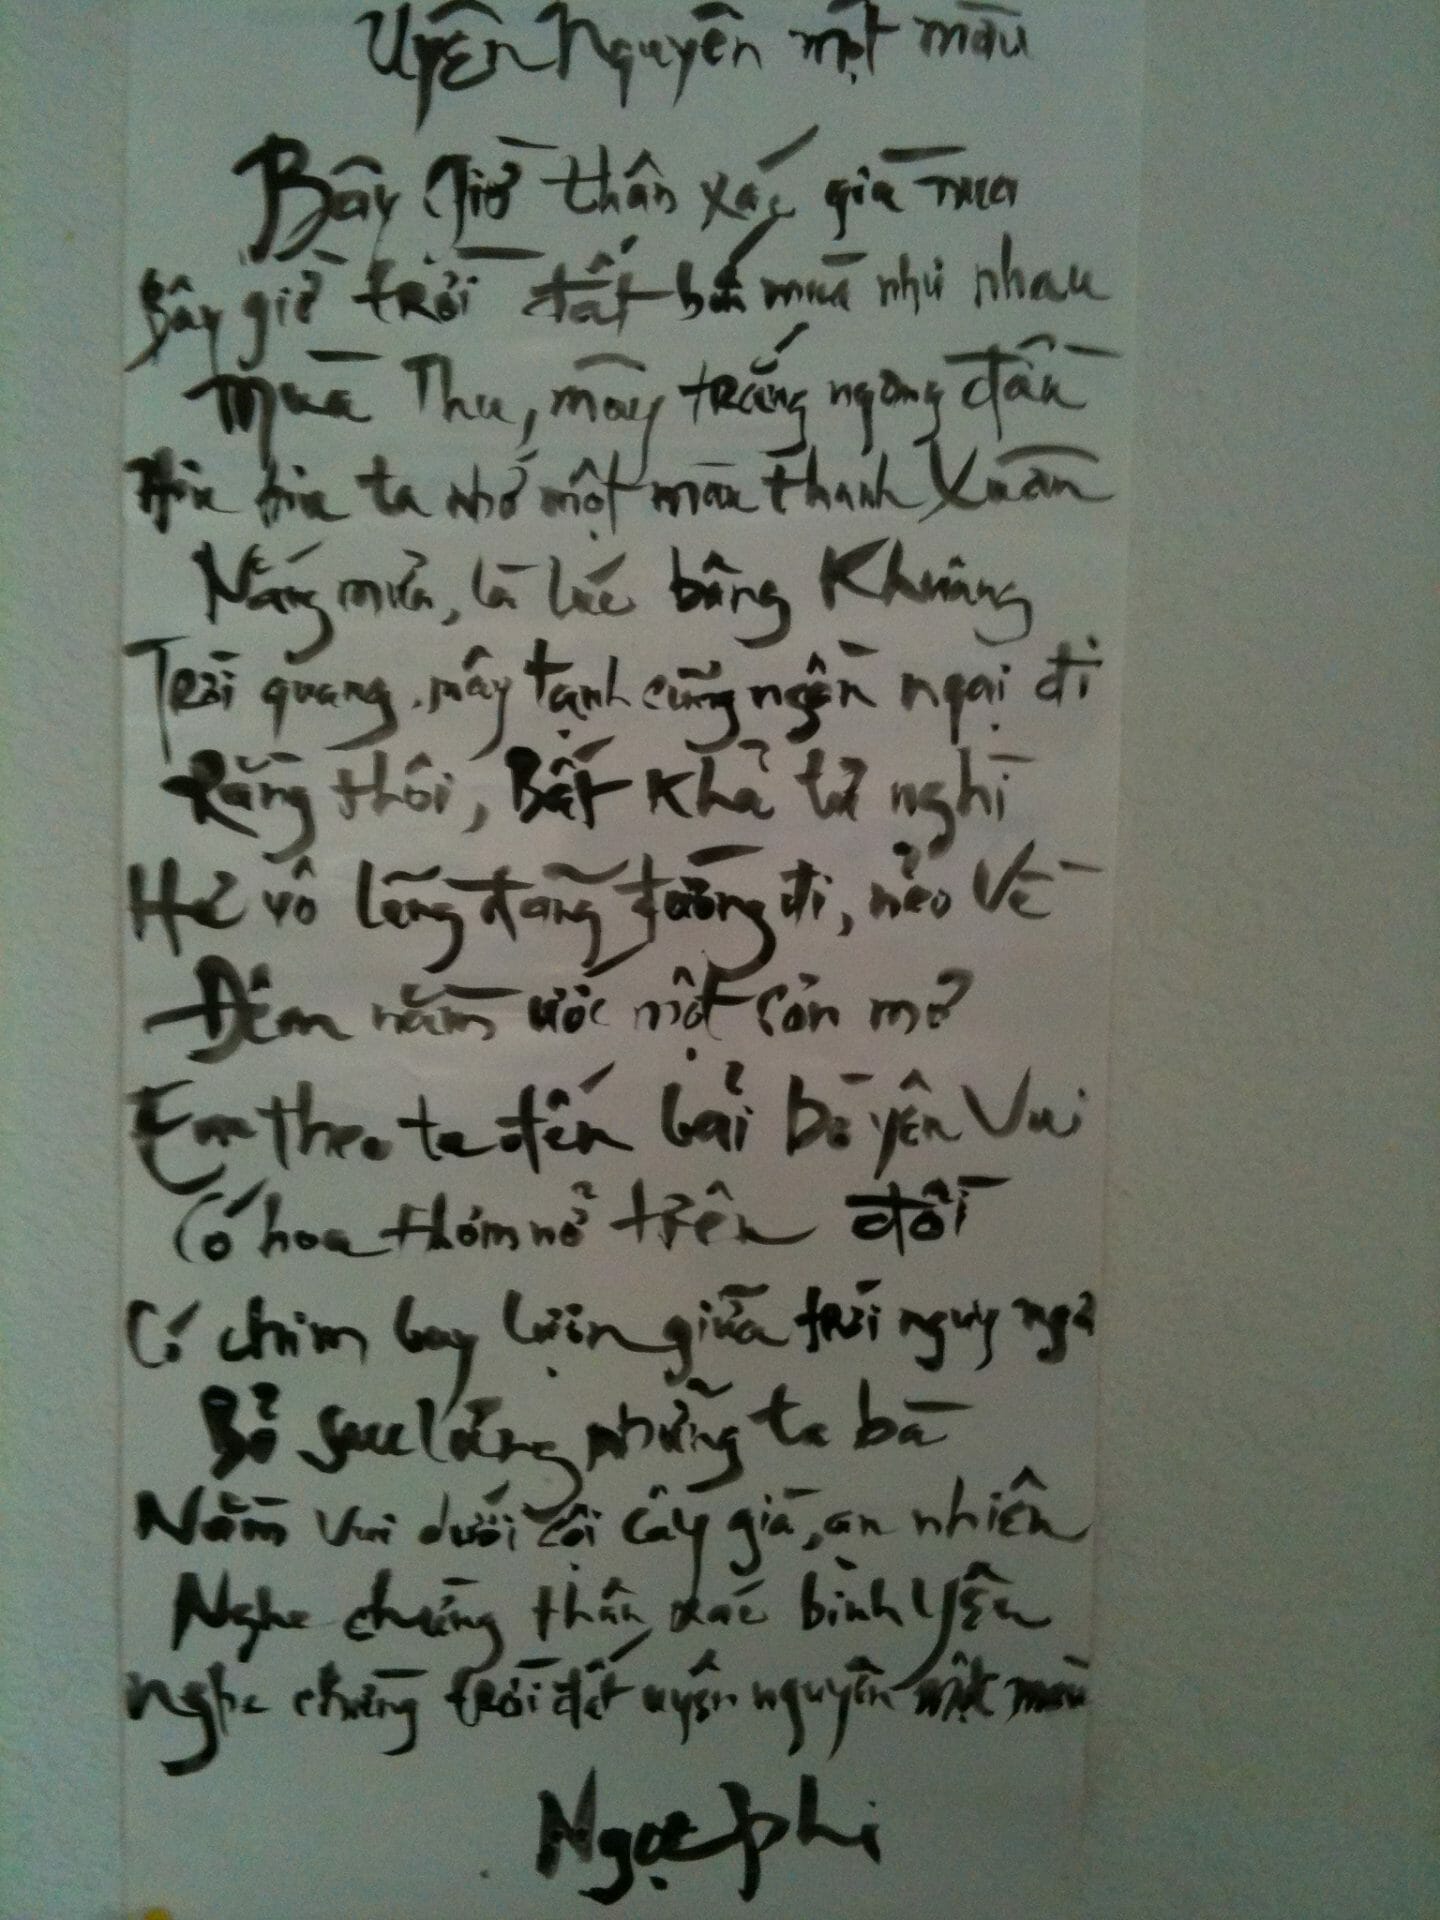 Uyên Nguyên một màu
Bây Giờ thân xác già nua
Bây giờ trời đất bốn mùa như nhau
Mùa Thu, mây trắng ngang đầu
hiu hiu ta nhớ một màu thanh Xuân
Nắng mưa, là lúc bâng Khuâng
Trời quang, mây tạnh cũng ngần ngại đi
Rằng thôi, Bất Khả tư nghì
Hư vô lãng đãng đường đi, nẻo Về
Đêm nằm ước một cơn mơ
Em theo ta đến bải bờ yên Vui
Có hoa thơm nở trên đồi
Có chim bay lượn giữa trời nguy nga
Bỏ sau lưng những ta bà
Nằm Vui dưới cội cây già, an nhiên
Nghe chừng thân xác bình Yên
nghe chừng trời đất uyên nguyên một màu
Ngọc phi